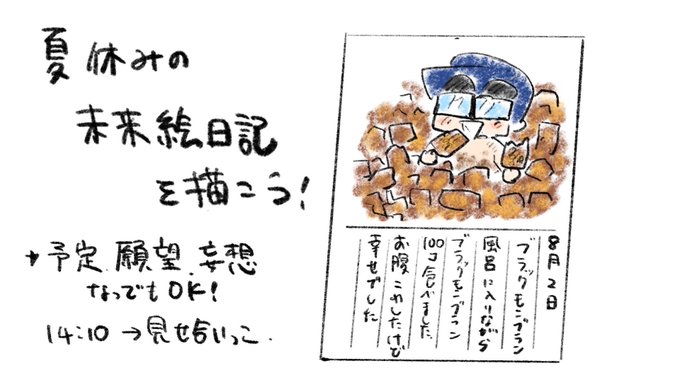 夏休みの
未来絵日記
を描こう!
→予定、願望、妄想
なってもOK!
14:10→見せ合いっこ
8月2日
ブラックモンブラン
風呂に入りながら
ブラックモンブラン
100コ食べました。
お腹こわしたけど
幸せでした